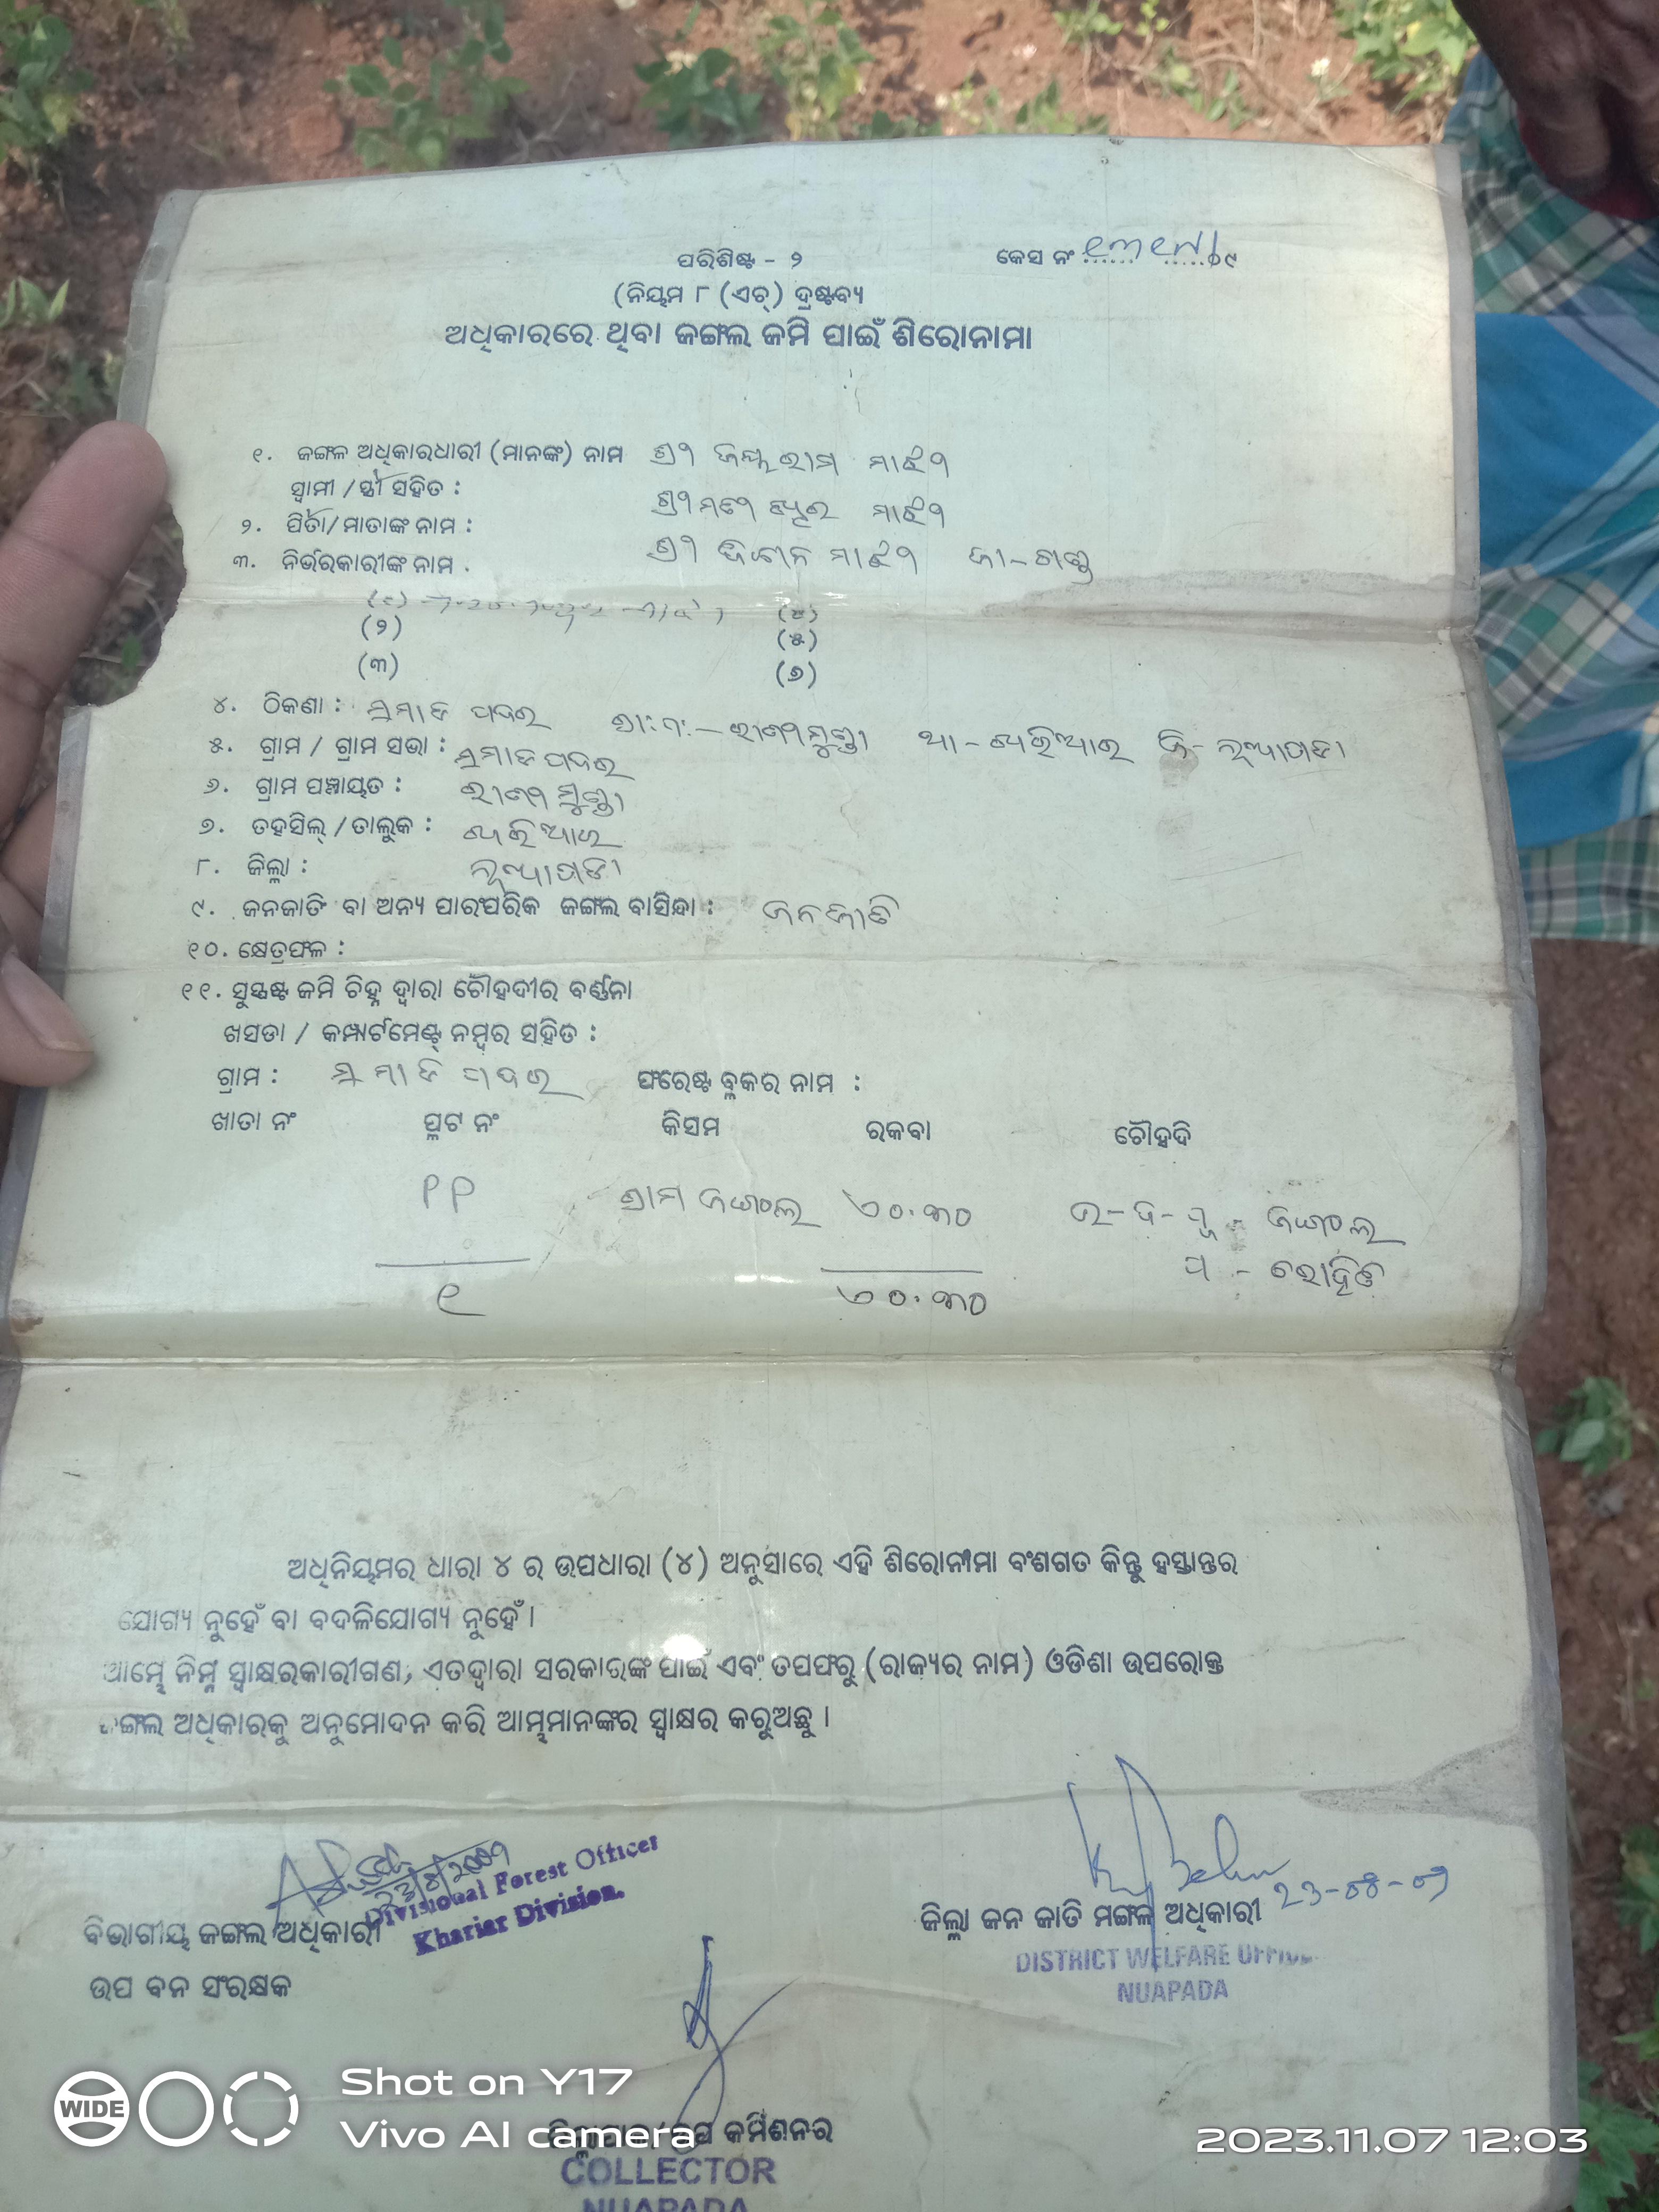 ପରିଶିଷ୍ଟ - ୨ କେସ ନଂ ......... /୦୯
(ନିୟମ ୮ (ଏଚ୍) ଦ୍ରଷ୍ଟବ୍ୟ
ଅଧିକାରରେ ଥିବା ଜଙ୍ଗଲ ଜମି ପାଇଁ ଶିରୋନାମା
୧. ଜଙ୍ଗଳ ଅଧିକାରଧାରୀ (ମାନଙ୍କ) ନାମ ଶ୍ରୀ ଜୟରାମ ମାଝୀ
ସ୍ୱାମୀ / ସ୍ତ୍ରୀ ସହିତ : ଶ୍ରୀମତୀ ମାଝୀ
୨. ପିତା/ମାତାଙ୍କ ନାମ : ଶ୍ରୀ ମାଝୀ ଜା - ଗଣ୍ଡ
୩. ନିର୍ଭରକାରୀଙ୍କ ନାମ .
(୧) (୪)
(୨) (୫)
(୩) (୬)
୪. ଠିକଣା : ପଦର ରାଣୀମୁଣ୍ଡା ଥା - ଖରିଆର ଜି - ନୂଆପଡା
୫. ଗ୍ରାମ / ଗ୍ରାମ ସଭା :
୬. ଗ୍ରାମ ପଞ୍ଚାୟତ : ରାଣୀମୁଣ୍ଡା
୭. ତହସିଲ୍ / ତାଲୁକ : ଖରିଆର
୮. ଜିଲ୍ଲା : ନୂଆପଡା
୯. ଜନଜାତି ବା ଅନ୍ୟ ପାରଂପରିକ ଜଙ୍ଗଲ ବାସିନ୍ଦା : ଜନଜାତି
୧୦. କ୍ଷେତ୍ରଫଳ :
୧୧. ସୁସ୍ପଷ୍ଟ ଜମି ଚିହ୍ନ ଦ୍ୱାରା ଚୌହଦୀର ବର୍ଣ୍ଣନା
ଖସଡା / କମ୍ପାର୍ଟମେଣ୍ଟ୍ ନମ୍ବର ସହିତ :
ଗ୍ରାମ : ପଦର ଫରେଷ୍ଟ ବ୍ଳକର ନାମ :
ଖାତା ନଂ ପ୍ଲଟ ନଂ କିସମ ରକବା ଚୌହଦି
ଗ୍ରାମ ଜଙ୍ଗଲ ୨୦.୩୦ ଉ - ଦ - ପୂ - ଜଙ୍ଗଲ
ପ - ରୋହିତ
୧ ୨୦.୩୦
ଅଧିନିୟମର ଧାରା ୪ ର ଉପଧାରା (୪) ଅନୁସାରେ ଏହି ଶିରୋନାମା ବଂଶଗତ କିନ୍ତୁ ହସ୍ତାନ୍ତର
ଯୋଗ୍ୟ ନୁହେଁ ବା ବଦଳିଯୋଗ୍ୟ ନୁହେଁ ।
ଆମ୍ଭେ ନିମ୍ନ ସ୍ୱାକ୍ଷରକାରୀଗଣ, ଏତଦ୍ୱାରା ସରକାରଙ୍କ ପାଇଁ ଏବଂ ତପଫରୁ (ରାଜ୍ୟର ନାମ) ଓଡିଶା ଉପରୋକ୍ତ
ଜଙ୍ଗଲ ଅଧିକାରକୁ ଅନୁମୋଦନ କରି ଆମ୍ଭମାନଙ୍କର ସ୍ୱାକ୍ଷର କରୁଅଛୁ ।
Divisional Forest Officer
Khariar Division.
ବିଭାଗୀୟ ଜଙ୍ଗଲ ଅଧିକାରୀ
ଉପ ବନ ସଂରକ୍ଷକ
23-08-09
ଜିଲ୍ଲା ଜନ ଜାତି ମଙ୍ଗଳ ଅଧିକାରୀ
DISTRICT WELFARE OFFICER
NUAPADA
କମିଶନର
COLLECTOR
NUAPADA
WIDE
Shot on Y17
Vivo AI camera
2023.11.07 12:03